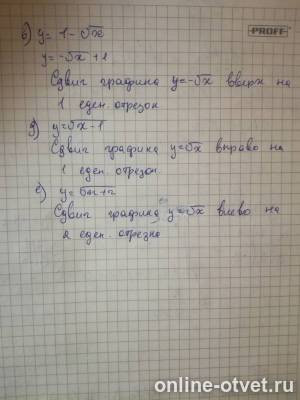 PROFF
в) y = 1 - √x
y = -√x + 1
Сдвиг графика y = -√x вверх на
1 един. отрезок
д) y = √x - 1
Сдвиг графика y = √x вправо на
1 един. отрезок
е) y = √x + 2
Сдвиг графика y = √x влево на
2 един. отрезка
online-otvet.ru